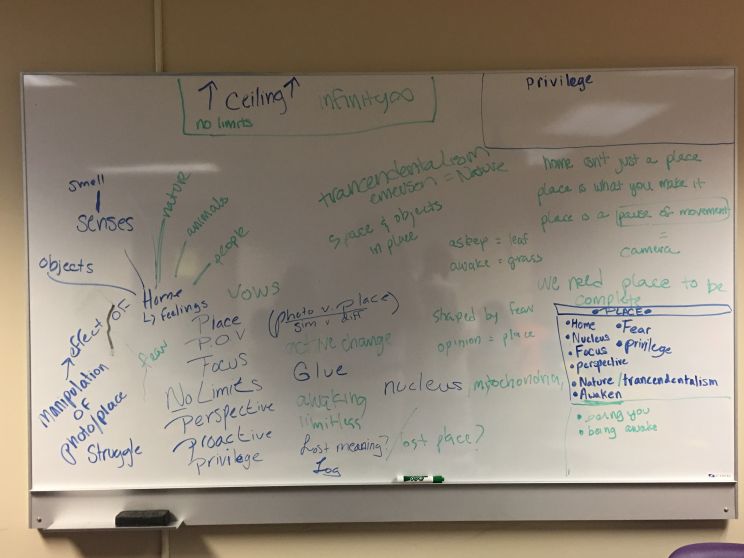 ↑ Ceiling ↑ infinity ∞
no limits
privilege
smell
senses
nature
animals
people
objects
Home
↳ feelings
OF
→ effect
manipulation
OF
photo/place
Struggle
fear
vows
Place
P.O.V
Focus
No Limits
Perspective
Proactive
privilege
trancendentalism
emerson = Nature
Space & objects
in place
(photo v. place)
sim v diff
active change
Glue
awaking
limitless
Lost meaning? / lost place?
Log
asteep = leaf
awake = grass
shaped by fear
opinion = place
nucleus / mitochondria
home isn't just a place
place is what you make it
place is a pause of movement
=
camera
we need place to be
complete
• PLACE •
• Home • Fear
• Nucleus • privlege
• Focus
• perspective
• Nature / trancendentalism
• Awaken
• being you
• being awake
EXPO